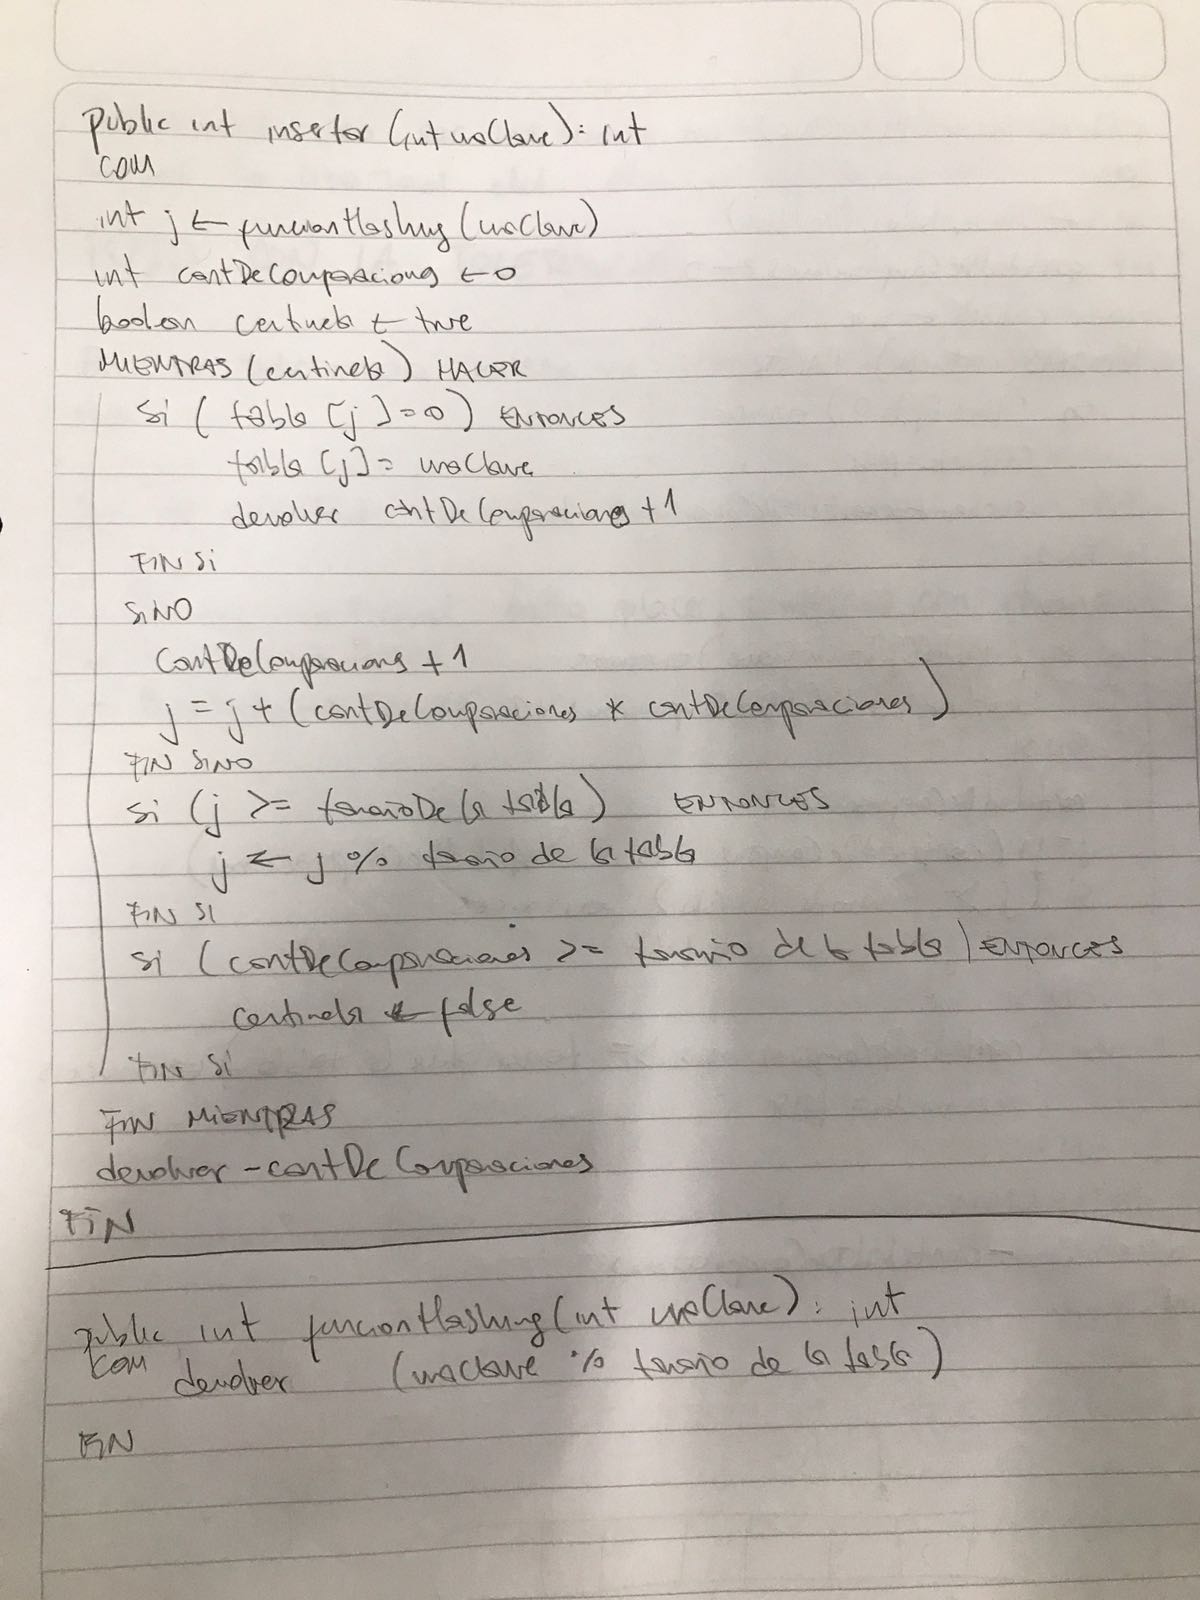 public int insertar (int unaClave): int
COM
int j ← funcionHashing (unaClave)
int contDeComparaciones ← 0
boolean centinela ← true
MIENTRAS (centinela) HACER
Si ( tabla [j] = 0 ) ENTONCES
tabla [j] = unaClave
devolver contDeComparaciones + 1
FIN Si
SiNO
contDeComparaciones + 1
j = j + (contDeComparaciones * contDeComparaciones)
FIN SiNO
Si (j >= tamañoDe la tabla) ENTONCES
j ← j % tamaño de la tabla
FIN Si
Si (contDeComparaciones >= tamaño de la tabla) ENTONCES
centinela ← false
FIN Si
FIN MiENTRAS
devolver - contDeComparaciones
FIN
public int funcionHashing (int unaClave): int
COM devolver (unaclave % tamaño de la tabla)
FIN